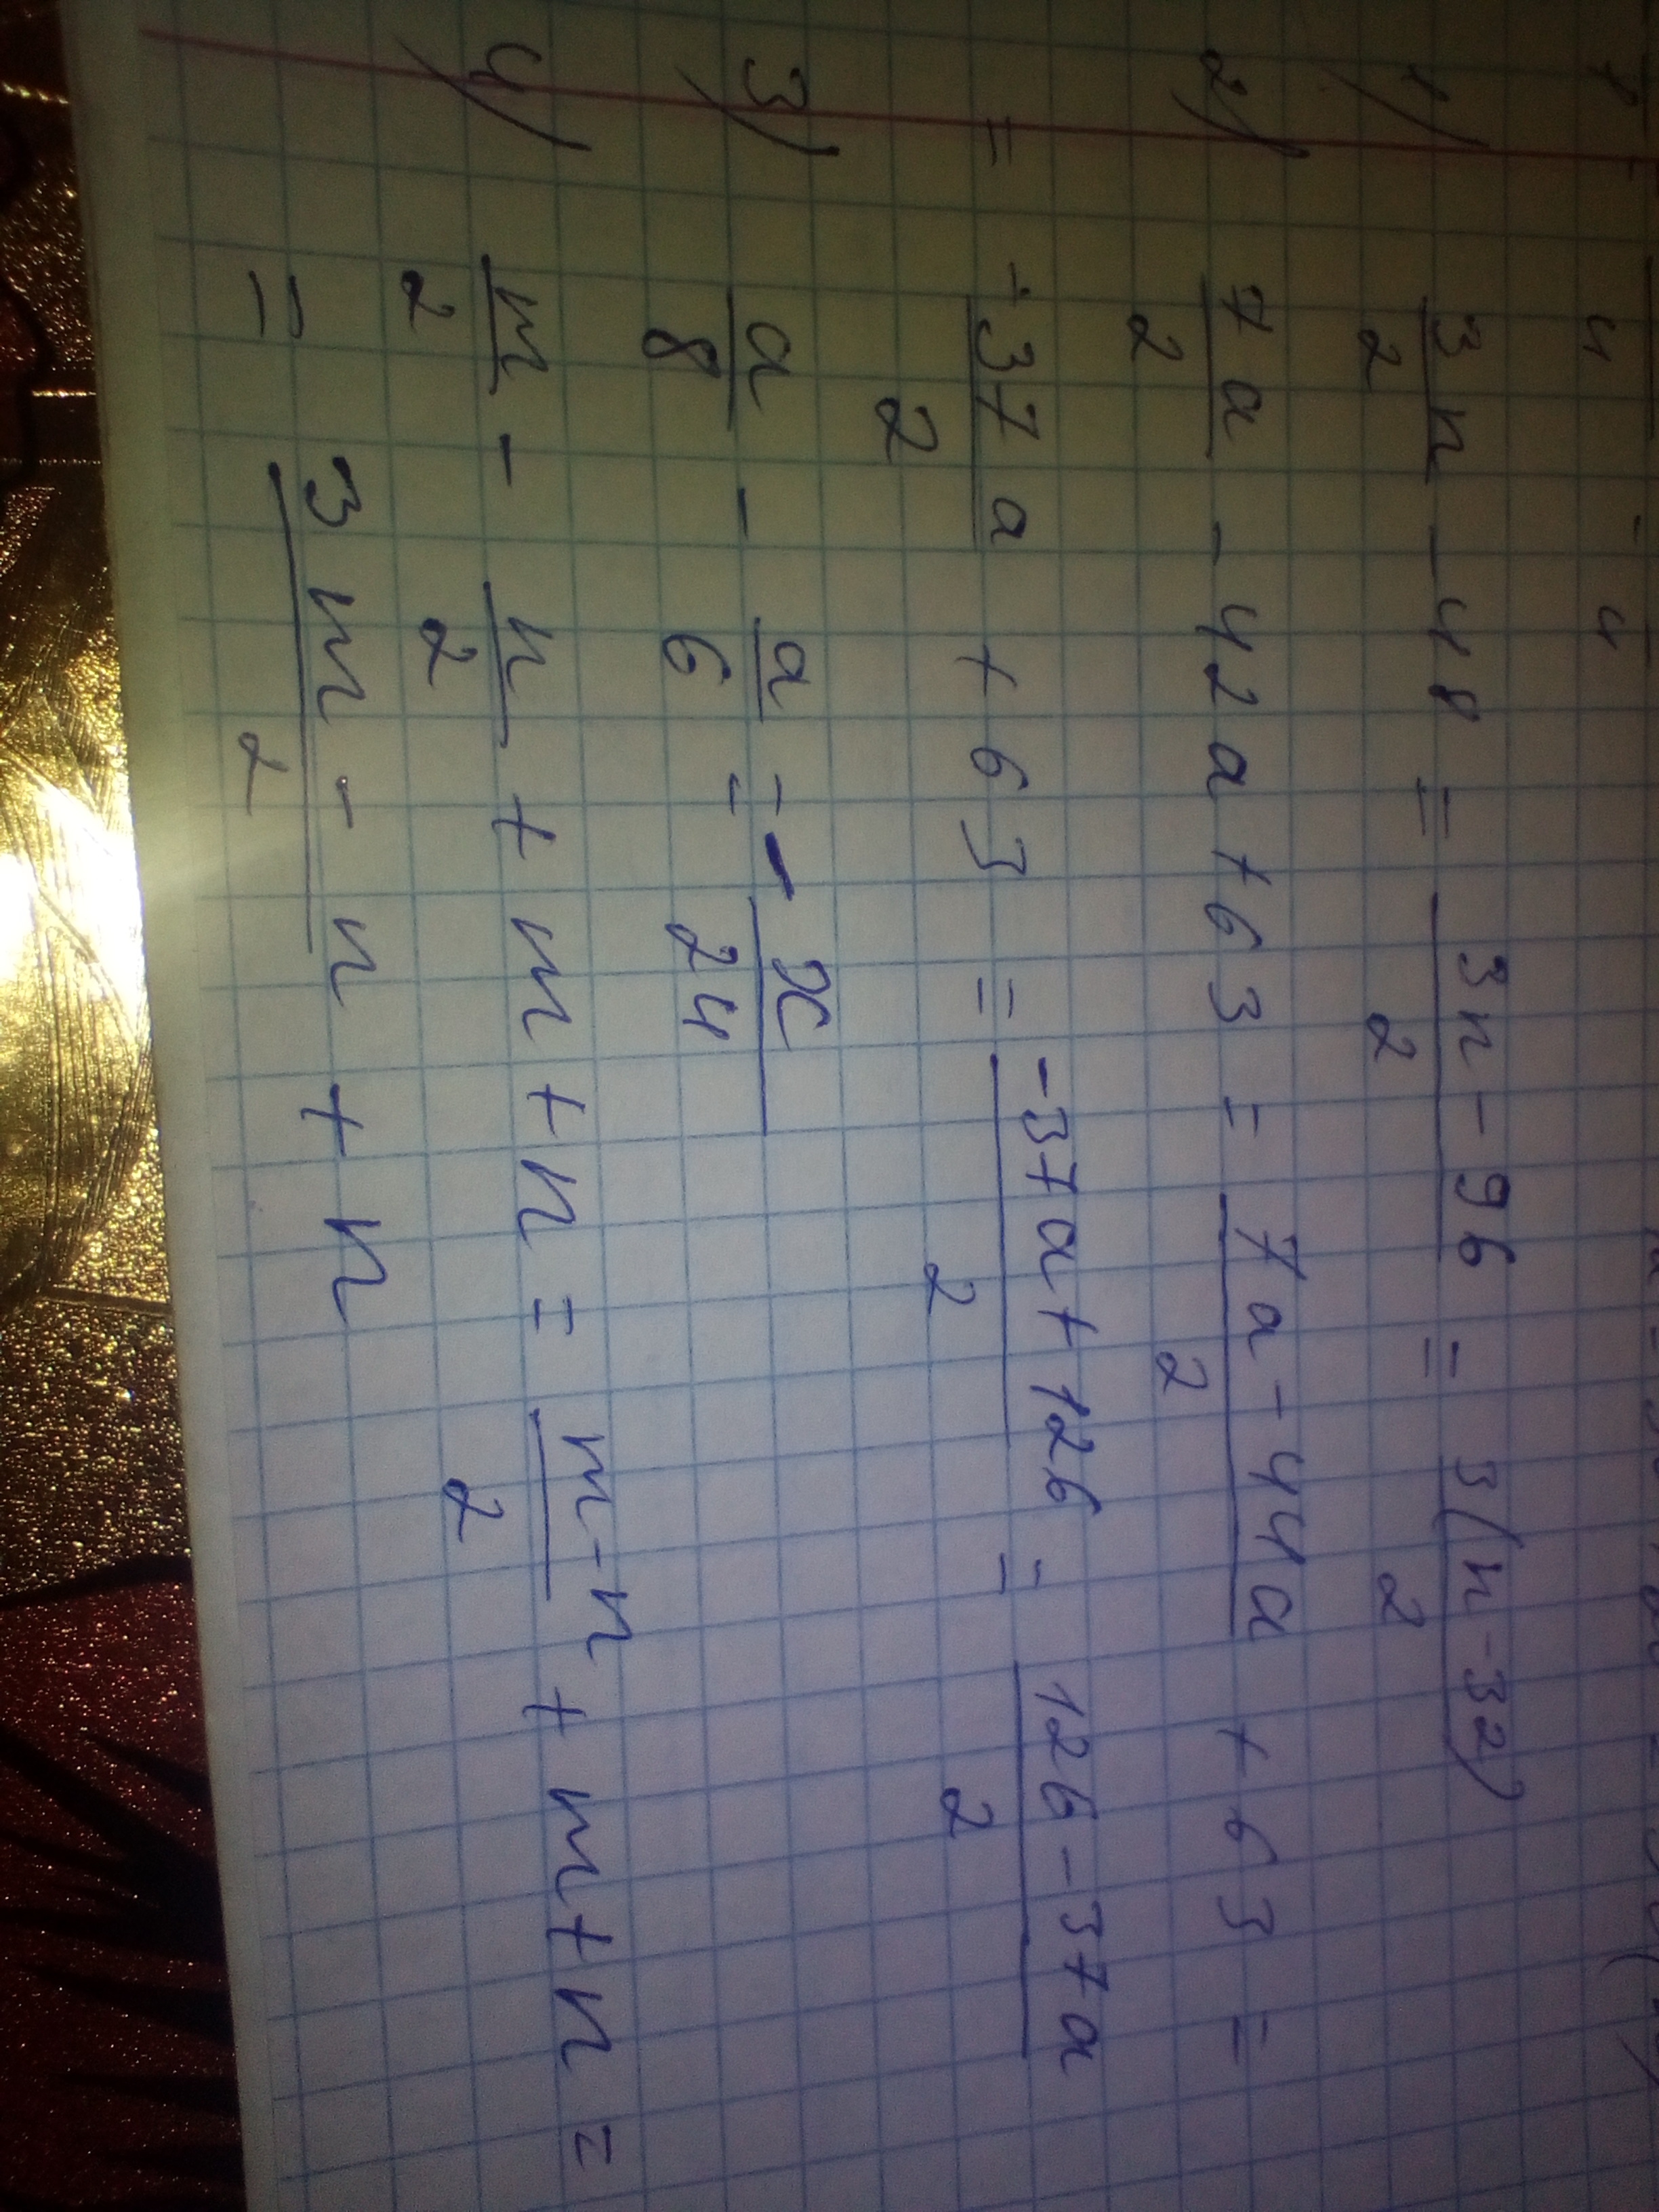 1) 3n/2 - 48 = 3n - 96/2 = 3(n - 32)/2
2) 7a/2 - 42a + 63 = 7a - 44a/2 + 63 =
= -37a/2 + 63 = -37a + 126/2 = 126 - 37a/2
3) a/8 - a/6 = - x/24
4) m/2 - n/2 + m + n = m - n/2 + m + n =
= 3m - n/2 + n